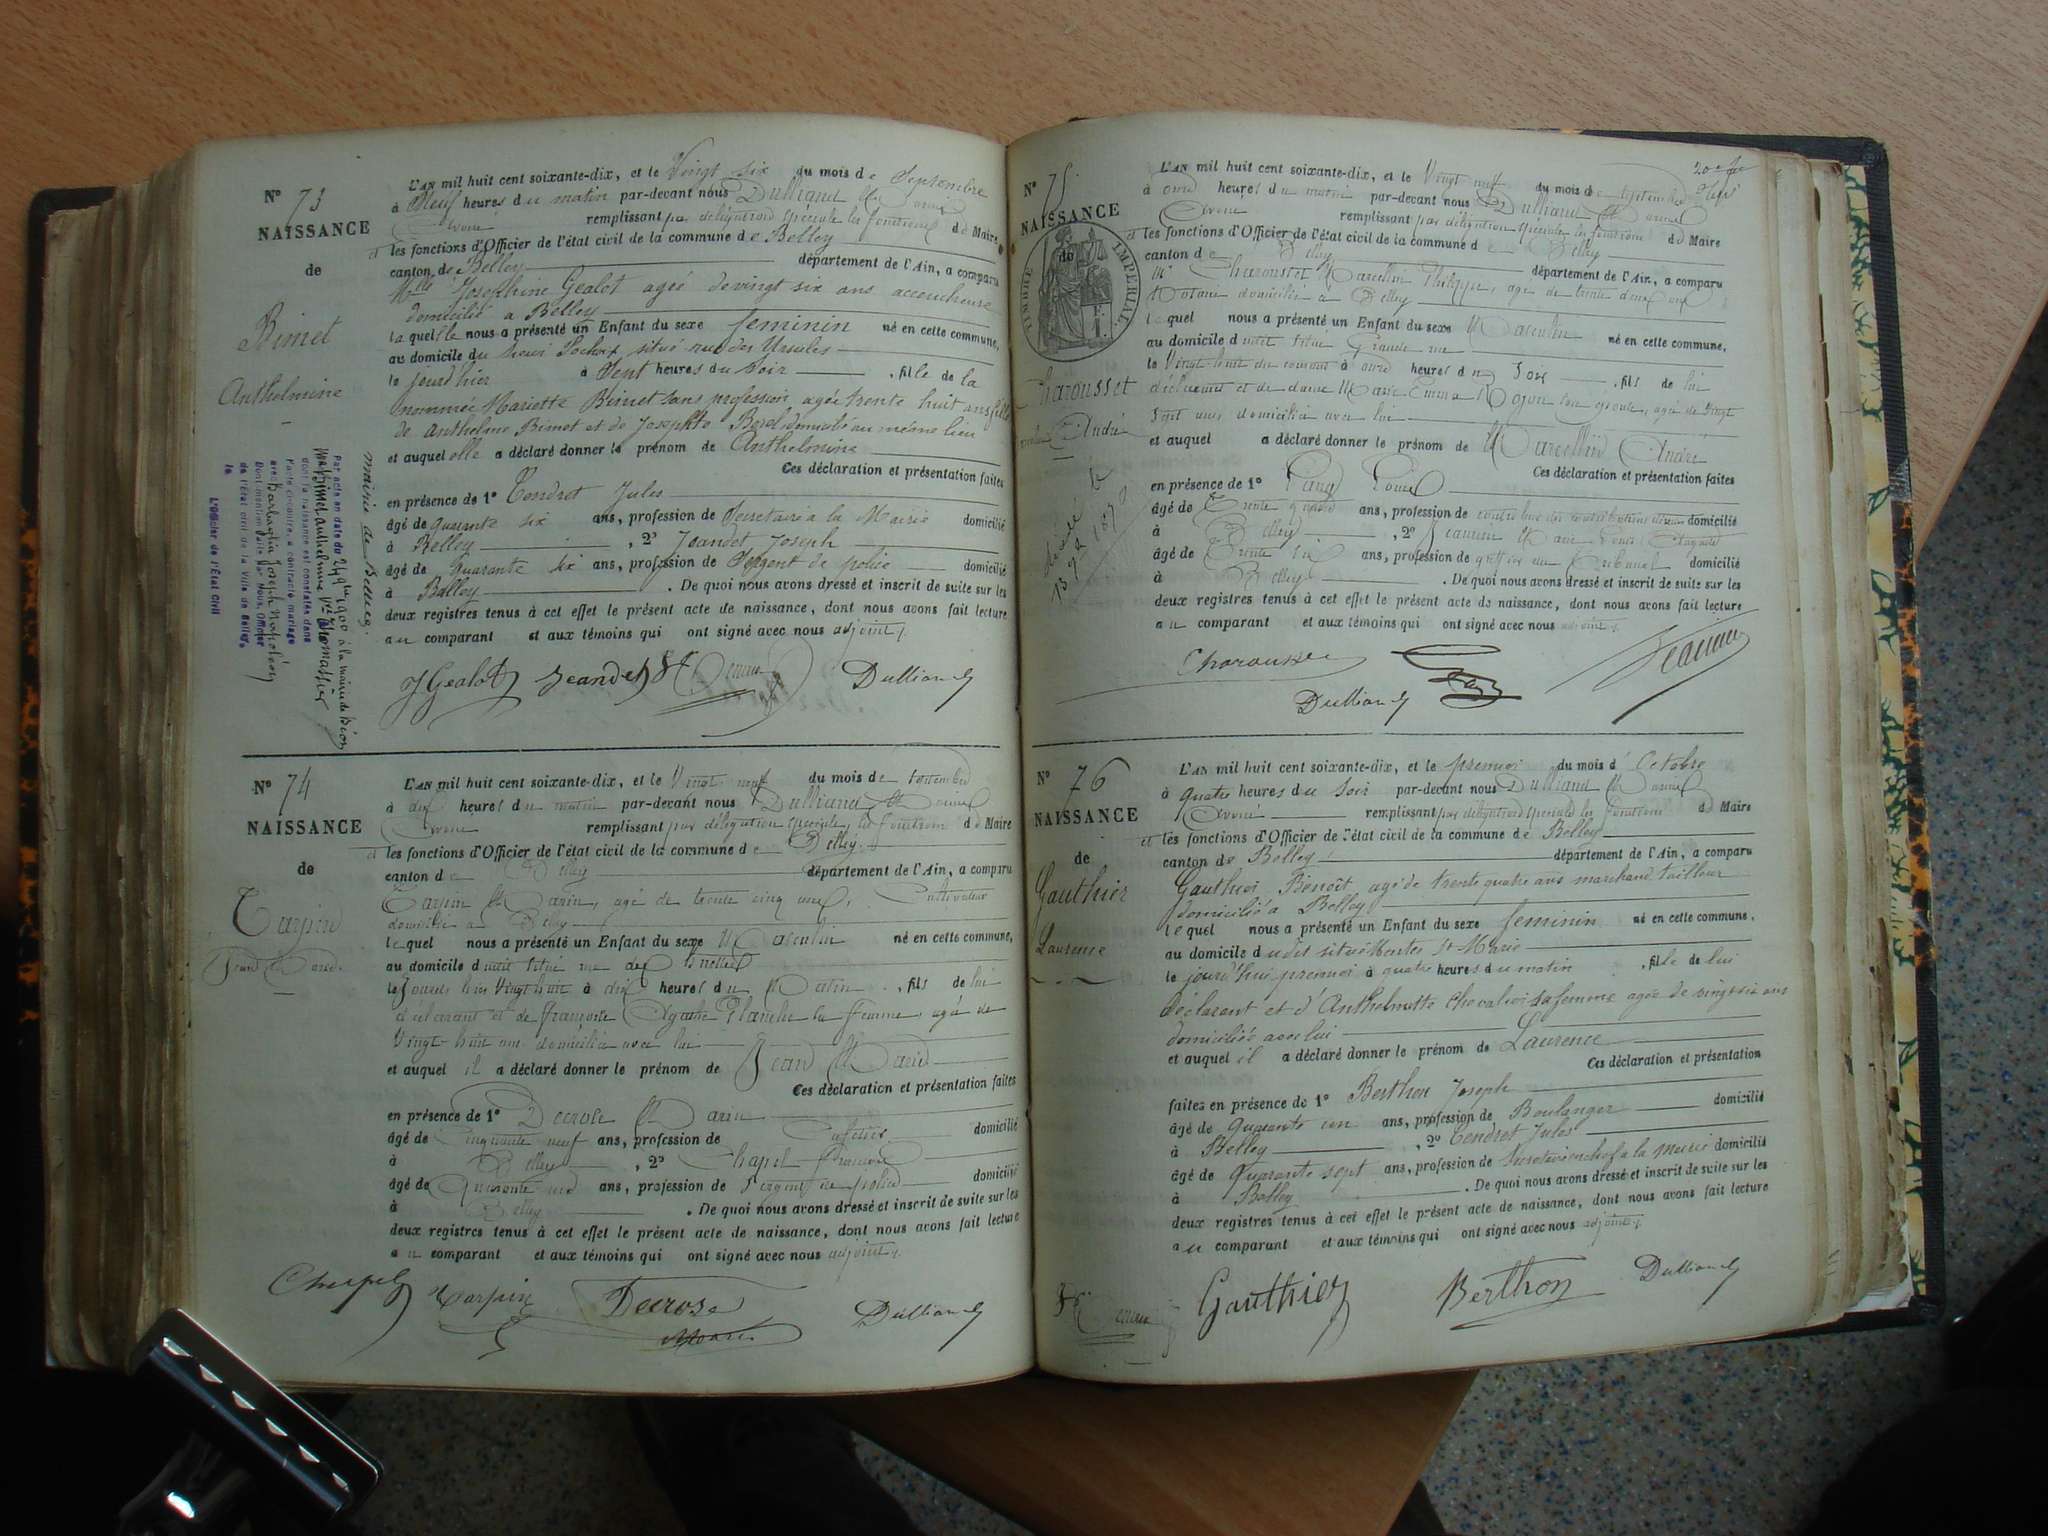 N° 73
NAISSANCE
de
Bimet
Anthelmine
L'AN mil huit cent soixante-dix, et le Vingt six du mois de Septembre
à Neuf heures du matin par-devant nous Dulliand
remplissant par délégation spéciale les fonctions de Maire
et les fonctions d'Officier de l'état civil de la commune de Belley
canton de Belley département de l'Ain, a comparu
Mlle Josephine Gealot agée de vingt six ans accoucheuse
domicilié a Belley
laquelle nous a présenté un Enfant du sexe feminin né en cette commune,
au domicile du sieur situé rue des Ursules
le jourd'hier à Sept heures du soir , fille de la
nommée Mariette Bimet sans profession agée trente huit ans fille
de Anthelme Bimet et de Josephte Borel domicilié au même lieu
et auquel elle a déclaré donner le prénom de Anthelmine
Ces déclaration et présentation faites
en présence de 1° Tendret Jules
âgé de quarante six ans, profession de Secretaire a la Mairie domicilié
à Belley , 2° Jeandet Joseph
âgé de quarante six ans, profession de Sergent de police domicilié
à Belley . De quoi nous avons dressé et inscrit de suite sur les
deux registres tenus à cet effet le présent acte de naissance, dont nous avons fait lecture
au comparant et aux témoins qui ont signé avec nous adjoint
J Gealot Jeandet Dulliand
mairie de
Par acte en date du 24 1900 à la mairie de
dont la naissance est constatée dans
l'acte ci-contre, a contracté mariage
avec Joseph Napoléon
Dont mention faite par Nous, Officier
de l'état civil de la Ville de Belley,
le
L'Officier de l'Etat Civil
N° 74
NAISSANCE
de
Tarpin
Jean Marie
L'AN mil huit cent soixante-dix, et le Vingt neuf du mois de Septembre
à dix heures du matin par-devant nous Dulliand
remplissant par délégation spéciale les fonctions de Maire
et les fonctions d'Officier de l'état civil de la commune de Belley
canton de Belley département de l'Ain, a comparu
Tarpin Marin, agé de trente cinq ans, Cultivateur
domicilié a Belley
lequel nous a présenté un Enfant du sexe Masculin né en cette commune,
au domicile dudit situé rue des
le vingt huit à dix heures du Matin , fils de lui
déclarant et de Françoise Agathe Planche sa femme, agée de
vingt-huit ans domiciliée avec lui
et auquel il a déclaré donner le prénom de Jean Marie
Ces déclaration et présentation faites
en présence de 1° Decrose Marin
âgé de Cinquante neuf ans, profession de Cafetier domicilié
à Belley , 2° Chapel François
âgé de Quarante ans, profession de Sergent de police domicilié
à Belley . De quoi nous avons dressé et inscrit de suite sur les
deux registres tenus à cet effet le présent acte de naissance, dont nous avons fait lecture
au comparant et aux témoins qui ont signé avec nous adjoint
Chapel Tarpin Decrose Dulliand
N° 75
NAISSANCE
de
TIMBRE IMPERIAL
Charousset
André
L'AN mil huit cent soixante-dix, et le Vingt neuf du mois de Septembre
à onze heures du matin par-devant nous Dulliand
remplissant par délégation spéciale les fonctions de Maire
et les fonctions d'Officier de l'état civil de la commune de Belley
canton de Belley département de l'Ain, a comparu
Mr Charousset Marcellin Philippe, agé de trente deux ans
Notaire domicilié a Belley
lequel nous a présenté un Enfant du sexe Masculin né en cette commune,
au domicile dudit situé Grande rue
le Vingt huit du courant à onze heures du Soir , fils de lui
déclarant et de dame Marie Emma son épouse, agée de vingt
sept ans, domiciliée avec lui
et auquel a déclaré donner le prénom de Marcellin André
Ces déclaration et présentation faites
en présence de 1° Louis
âgé de Trente ans, profession de domicilié
à Belley , 2° Jeannin Marie
âgé de Trente six ans, profession de greffier du Tribunal domicilié
à Belley . De quoi nous avons dressé et inscrit de suite sur les
deux registres tenus à cet effet le présent acte de naissance, dont nous avons fait lecture
au comparant et aux témoins qui ont signé avec nous adjoint
Charousset Jeannin
Dulliand
N° 76
NAISSANCE
de
Gauthier
Laurence
L'AN mil huit cent soixante-dix, et le premier du mois d'Octobre
à quatre heures du Soir par-devant nous Dulliand
remplissant par délégation spéciale les fonctions de Maire
et les fonctions d'Officier de l'état civil de la commune de Belley
canton de Belley département de l'Ain, a comparu
Gauthier Benoît, agé de trente quatre ans marchand tailleur
domicilié a Belley
lequel nous a présenté un Enfant du sexe feminin né en cette commune,
au domicile dudit situé Montée St Marie
le jourd'hui premier à quatre heures du matin , fille de lui
déclarant et d'Anthelmette Chevalier sa femme agée de vingt six ans
domiciliée avec lui
et auquel il a déclaré donner le prénom de Laurence
Ces déclaration et présentation
faites en présence de 1° Berthon Joseph
âgé de quarante un ans, profession de Boulanger domicilié
à Belley , 2° Tendret Jules
âgé de Quarante sept ans, profession de Secretaire chef a la mairie domicilié
à Belley . De quoi nous avons dressé et inscrit de suite sur les
deux registres tenus à cet effet le présent acte de naissance, dont nous avons fait lecture
au comparant et aux témoins qui ont signé avec nous adjoint
Gauthier Berthon Dulliand